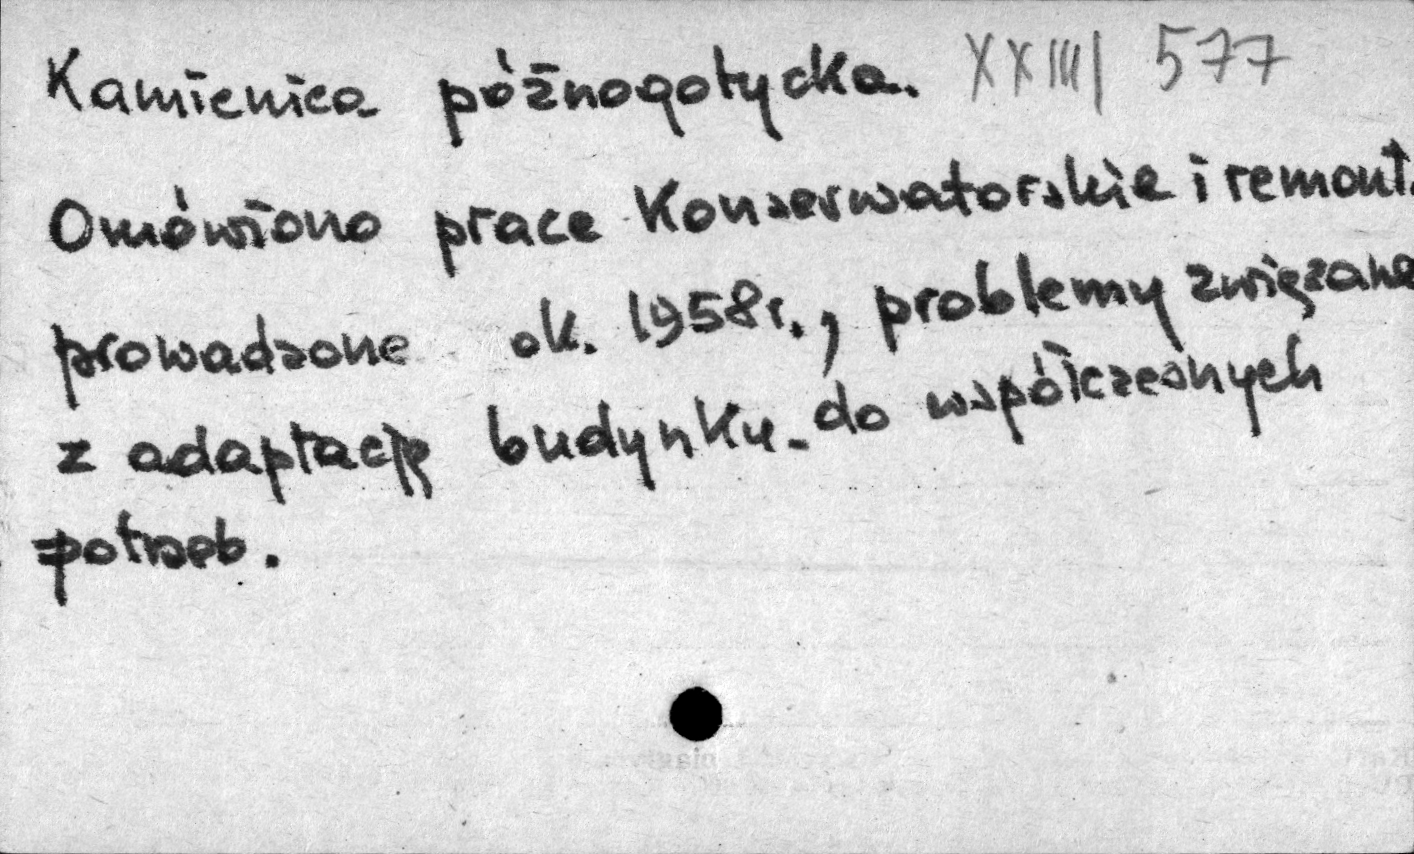 Kamienica późnogotycka. XXIII/ 577
Omówiono prace konserwatorskie i remont.
prowadzone ok. 1958r., problemy związane
z adaptacją budynku do współczesnych
potrzeb.